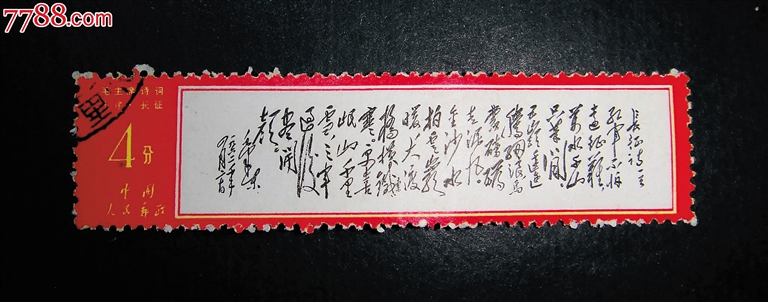 7788.com
毛主席诗词
长征
4分
中国
人民邮政
里
长征诗一首
红军不怕
远征难
万水千山
只等闲
五岭逶迤
腾细浪乌
蒙磅礴
走泥丸
金沙水
拍云崖
暖大渡
桥横铁索
寒更喜
岷山千里
雪三军
过后
尽开
颜
毛泽东